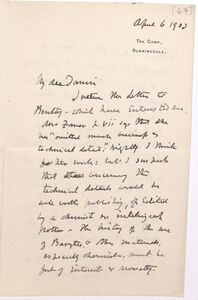 (67)
April 6 1903
THE CAMP,
SUNNINGDALE.
My dear Darwin
I return the letter to
Bentley — which have interested me
Mrs in p VII says that she
has "omitted much
technical detail": rightly I think
for her work: but I
that those concerning the
technical details would be
well worth publishing, if edited
by a chemist or
Potter — the history of the use
of Barytes & other materials,
especially chemical, must be
full of interest & novelty.